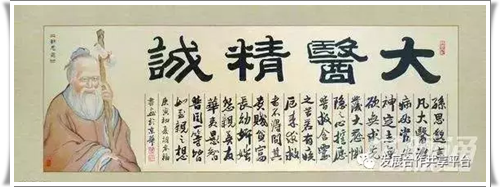 大醫精誠
孫思邈
凡大醫治
病必當安
神定志無
欲無求先
發大慈惻
隱之心誓願
普救含靈
之苦若有疾
厄來求救
者不得問其
貴賤貧富
長幼妍蚩
怨親善友
華夷愚智
普同一等皆
如至親之想
庚寅初夏
於京華
发展合作共享平台